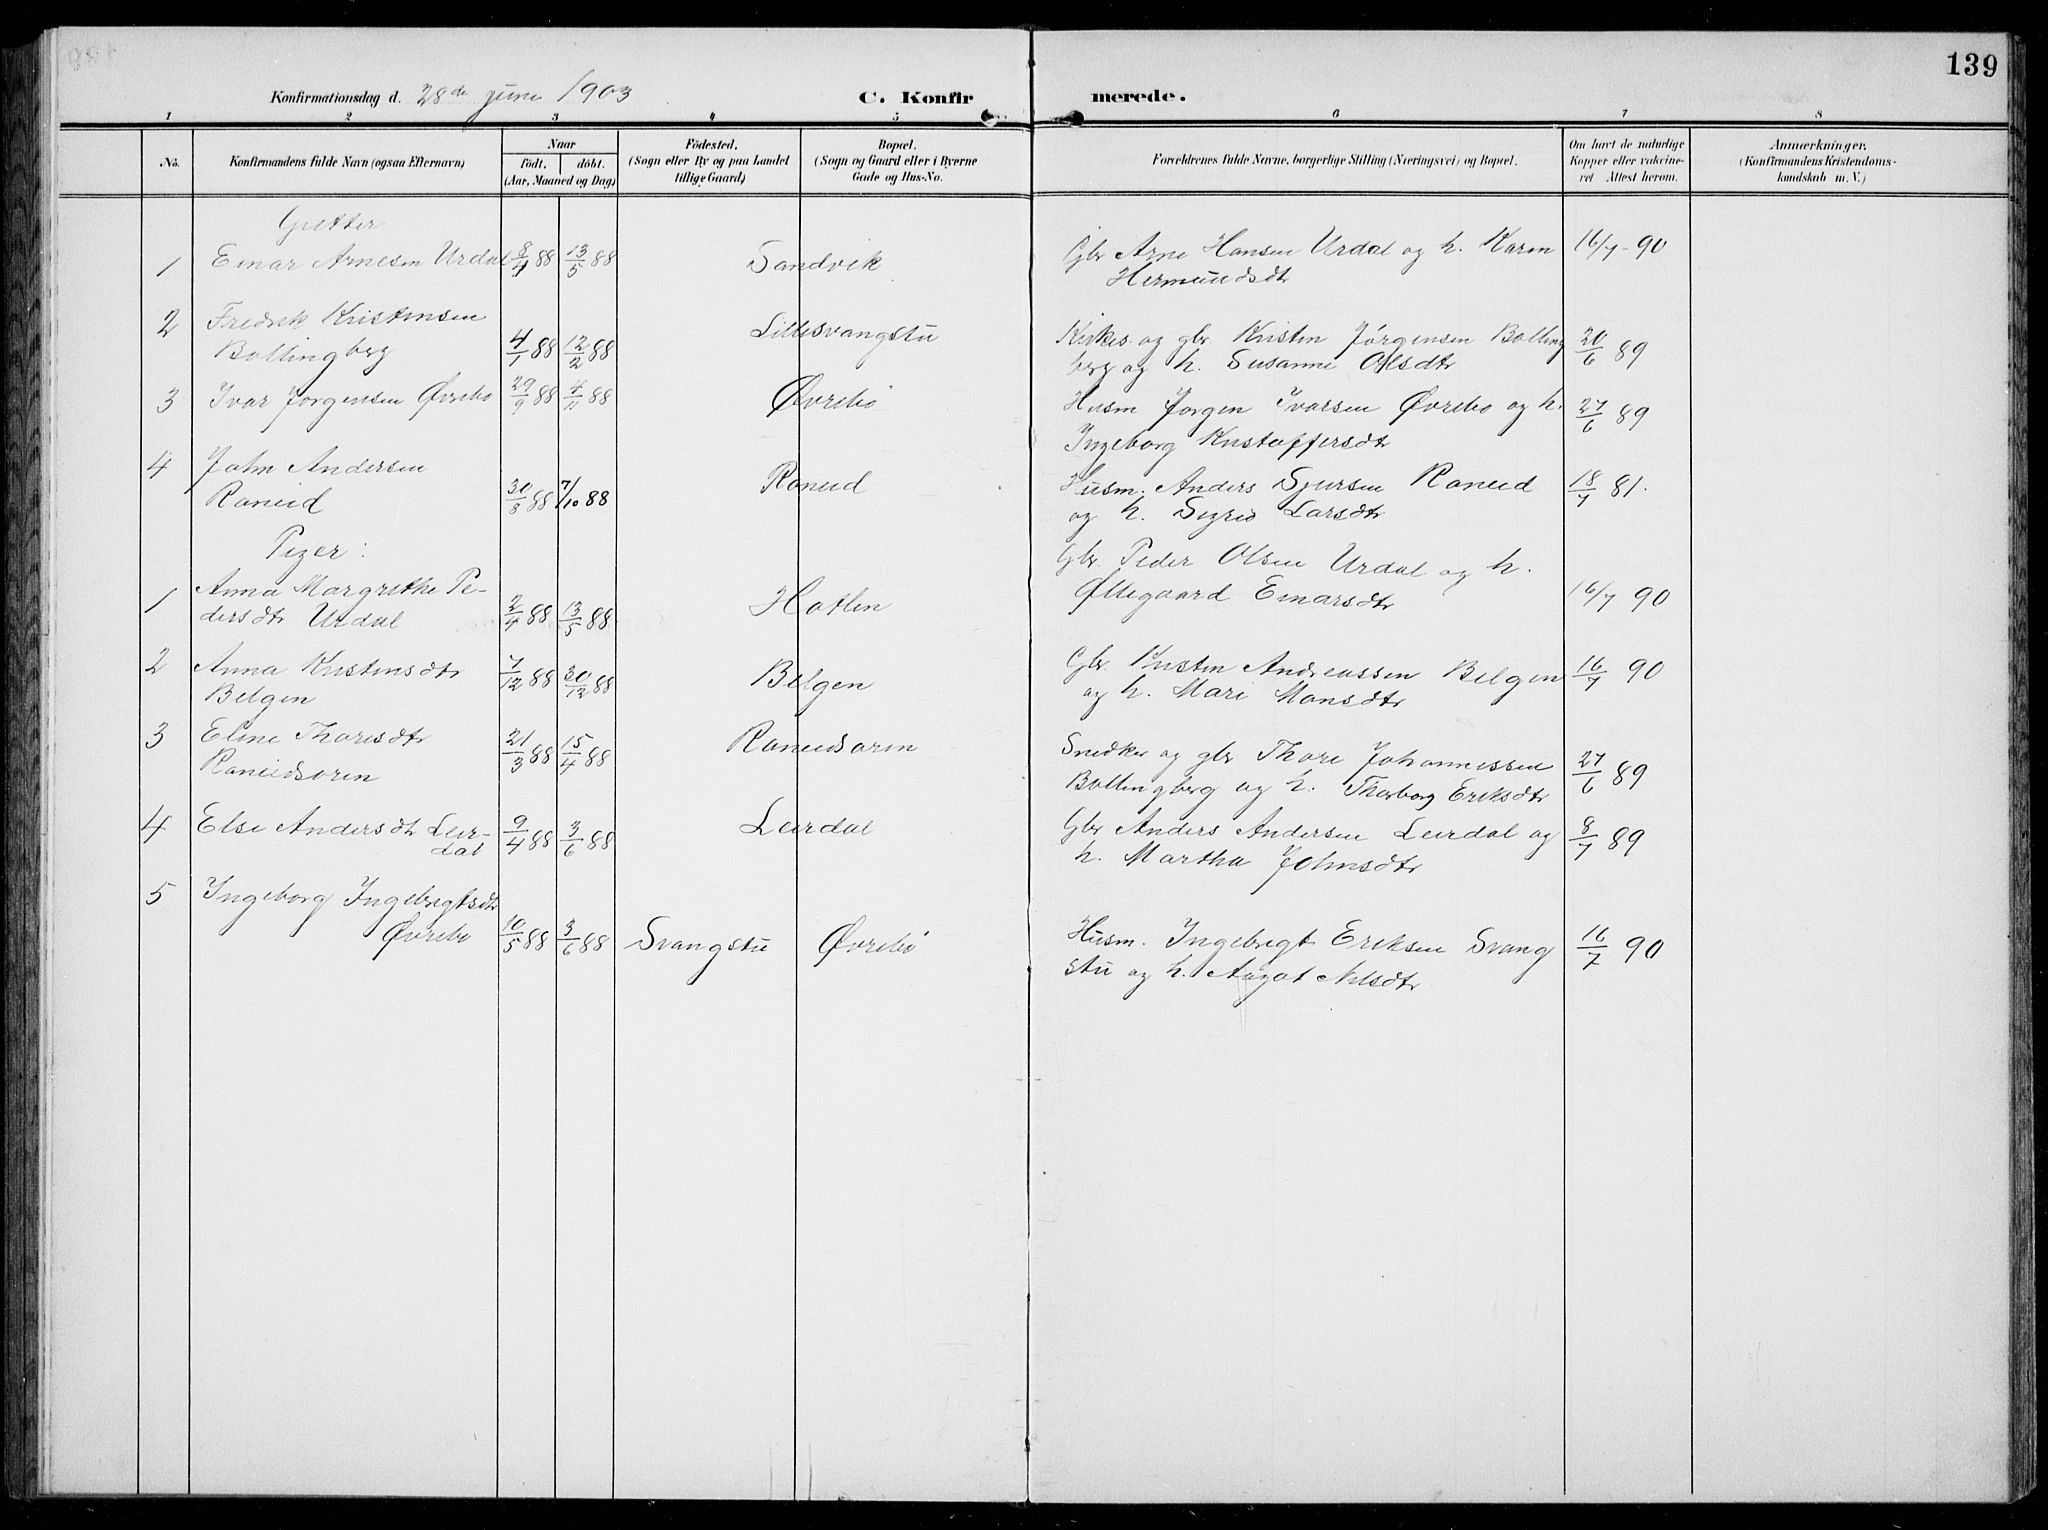 139
Konfirmationsdag d. 28de juni 1903
C. Konfirmerede.
1 2 3 4 5 6 7 8
No. Konfirmandens fulde Navn (ogsaa Efternavn) Naar födt. döbt. (Aar, Maaned og Dag) Födested. (Sogn eller By og paa Landet tillige Gaard) Bopæl. (Sogn og Gaard eller i Byerne Gade og Hus-No. Forældrenes fulde Navne, borgerlige Stilling (Næringsvei) og Bopæl. Om havt de naturlige Kopper eller vakcineret Attest herom. Anmærkninger. (Konfirmandens Kristendomskundskab m. V.)
Gutter
1 Einar Arnesen Urdal 8/4 88 13/5 88 Sandvik Gbr Arne Hansen Urdal og h. Karen 16/7-90
Hermundsdtr
2 Fredrik Kristensen
Bollingberg 4/1 88 12/2 88 Lillesvangstu Kirkes. og gbr. Kristen Jørgensen Bolling 20/6 89
berg og h. Susanne Olsdtr
3 Ivar Jørgensen Øvrebø 29/9 88 4/11 88 Øvrebø Husm Jørgen Ivarsen Øvrebø og h. 27/6 89
Ingeborg Kristoffersdtr
4 John Andersen
Raneid 30/8 88 7/10 88 Raneid Husm. Anders Sjursen Raneid 18/7 81.
og h. Sigrid Larsdtr
Piger:
1 Anna Margrethe Pe-
dersdtr Urdal 2/4 88 13/5 88 Hatlen Gbr. Peder Olsen Urdal og h.
Øllegaard Einarsdtr 16/7 90
2 Anna Kristensdtr
Belgen 7/12 88 30/12 88 Belgen Gbr. Kristen Andreassen Belgen 16/7 90
og h. Mari Monsdtr
3 Eline Thoresdtr
Raneidsøren 21/3 88 15/4 88 Raneidsøren Snedker og gbr Thore Johannessen 27/6 89
Bollingberg og h. Thorborg Eriksdtr
4 Else Andersdtr Leir-
dal 9/4 88 3/6 88 Leirdal Gbr Anders Andersen Leirdal og 8/7 89
h. Martha Johnsdtr
5 Ingeborg Ingebrigtsdtr
Øvrebø 10/5 88 3/6 88 Svangstu Øvrebø Husm. Ingebrigt Eriksen Svang 16/7 90
stu og h. Aagot Nilsdtr